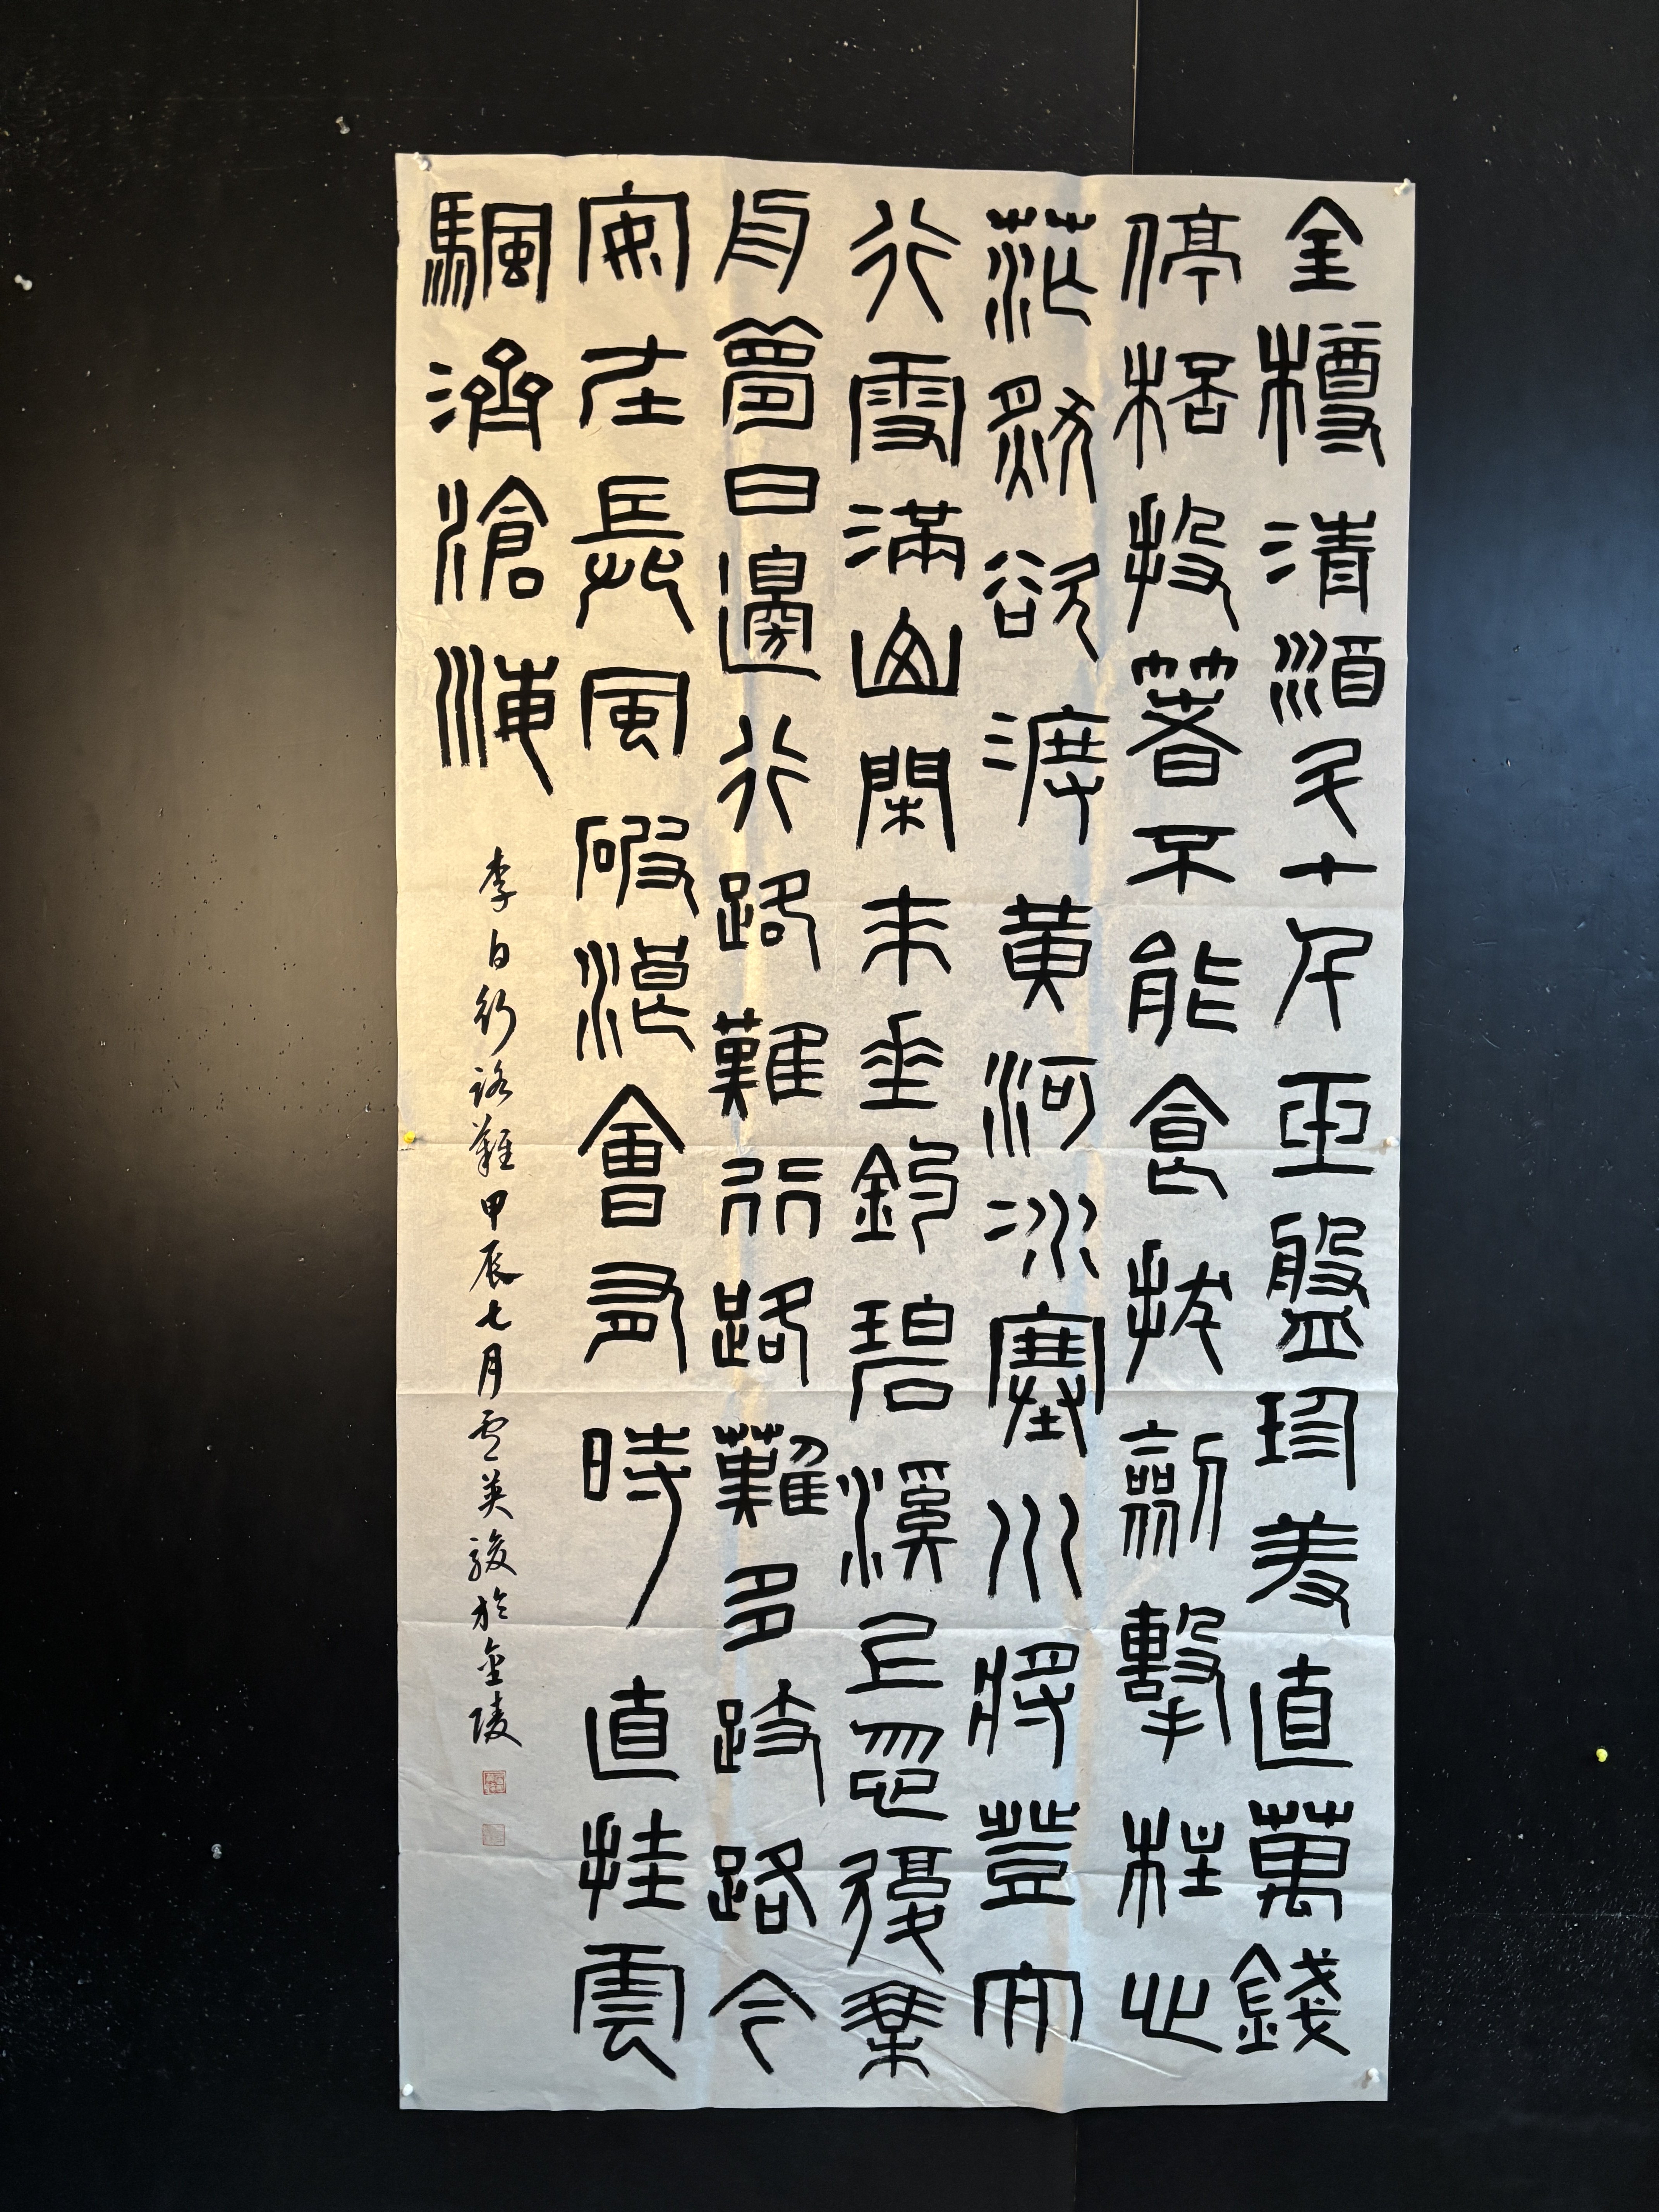 金樽清酒斗十千玉盤珍羞直萬錢
停桮投箸不能食拔劍擊柱心
茫然欲渡黃河冰塞川將登太
行雪滿山閑來垂釣碧溪上忽復乘
舟夢日邊行路難行路難多歧路今
安在長風破浪會有時直挂雲
颿濟滄海
李白行路難甲辰七月英駿於金陵